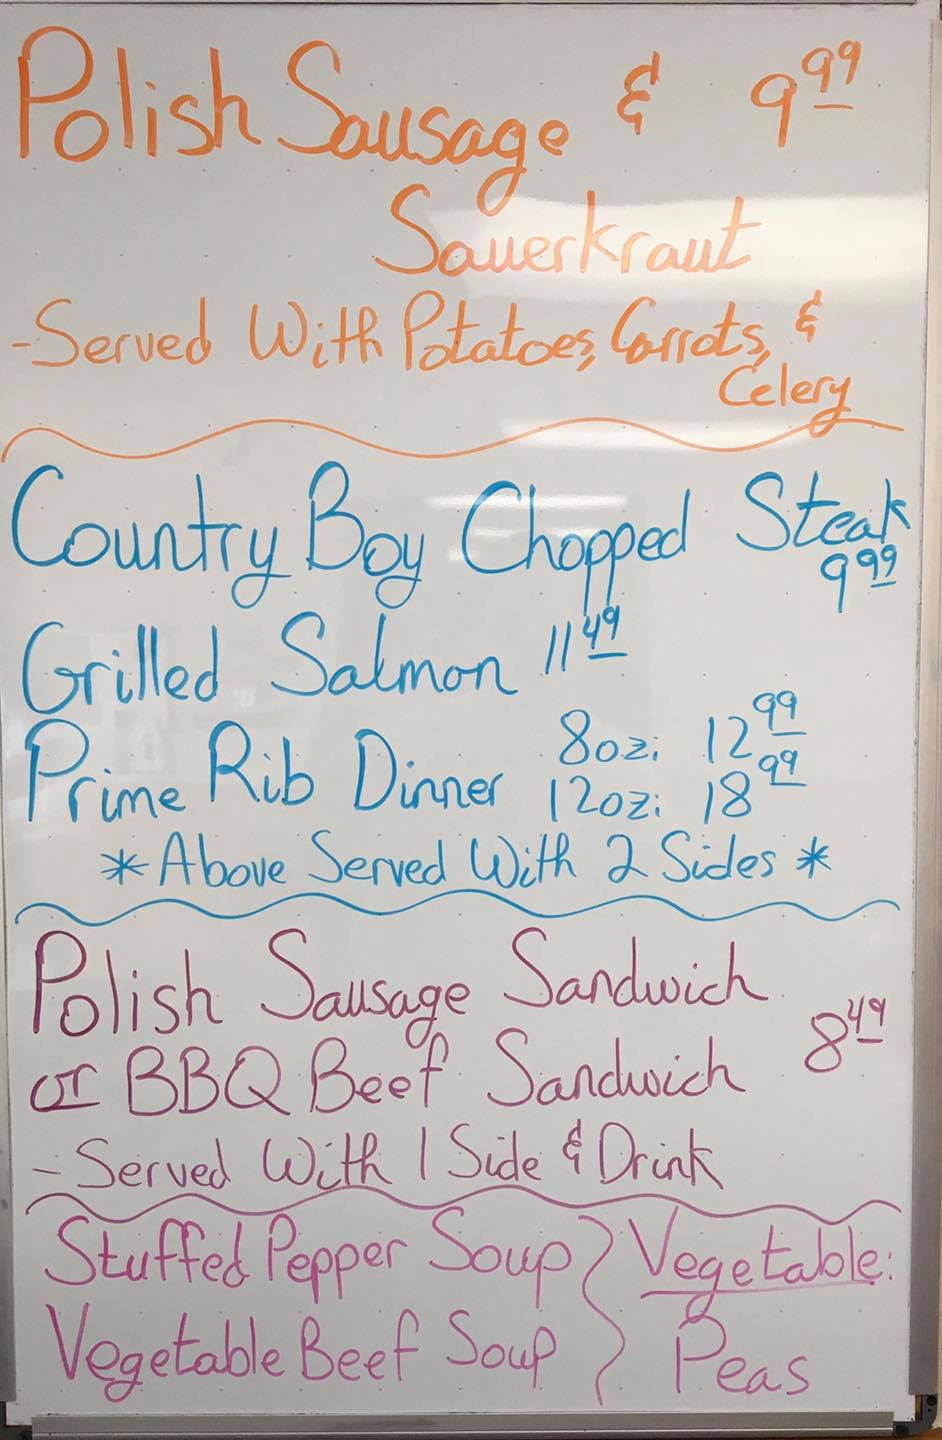 Polish Sausage & 9.99
Sauerkraut
- Served With Potatoes, Carrots, &
Celery
Country Boy Chopped Steak
9.99
Grilled Salmon 11.49
Prime Rib Dinner 8oz: 12.99
12oz: 18.99
* Above Served With 2 Sides *
Polish Sausage Sandwich
or BBQ Beef Sandwich 8.49
- Served With 1 Side & Drink
Stuffed Pepper Soup
Vegetable Beef Soup
Vegetable:
Peas